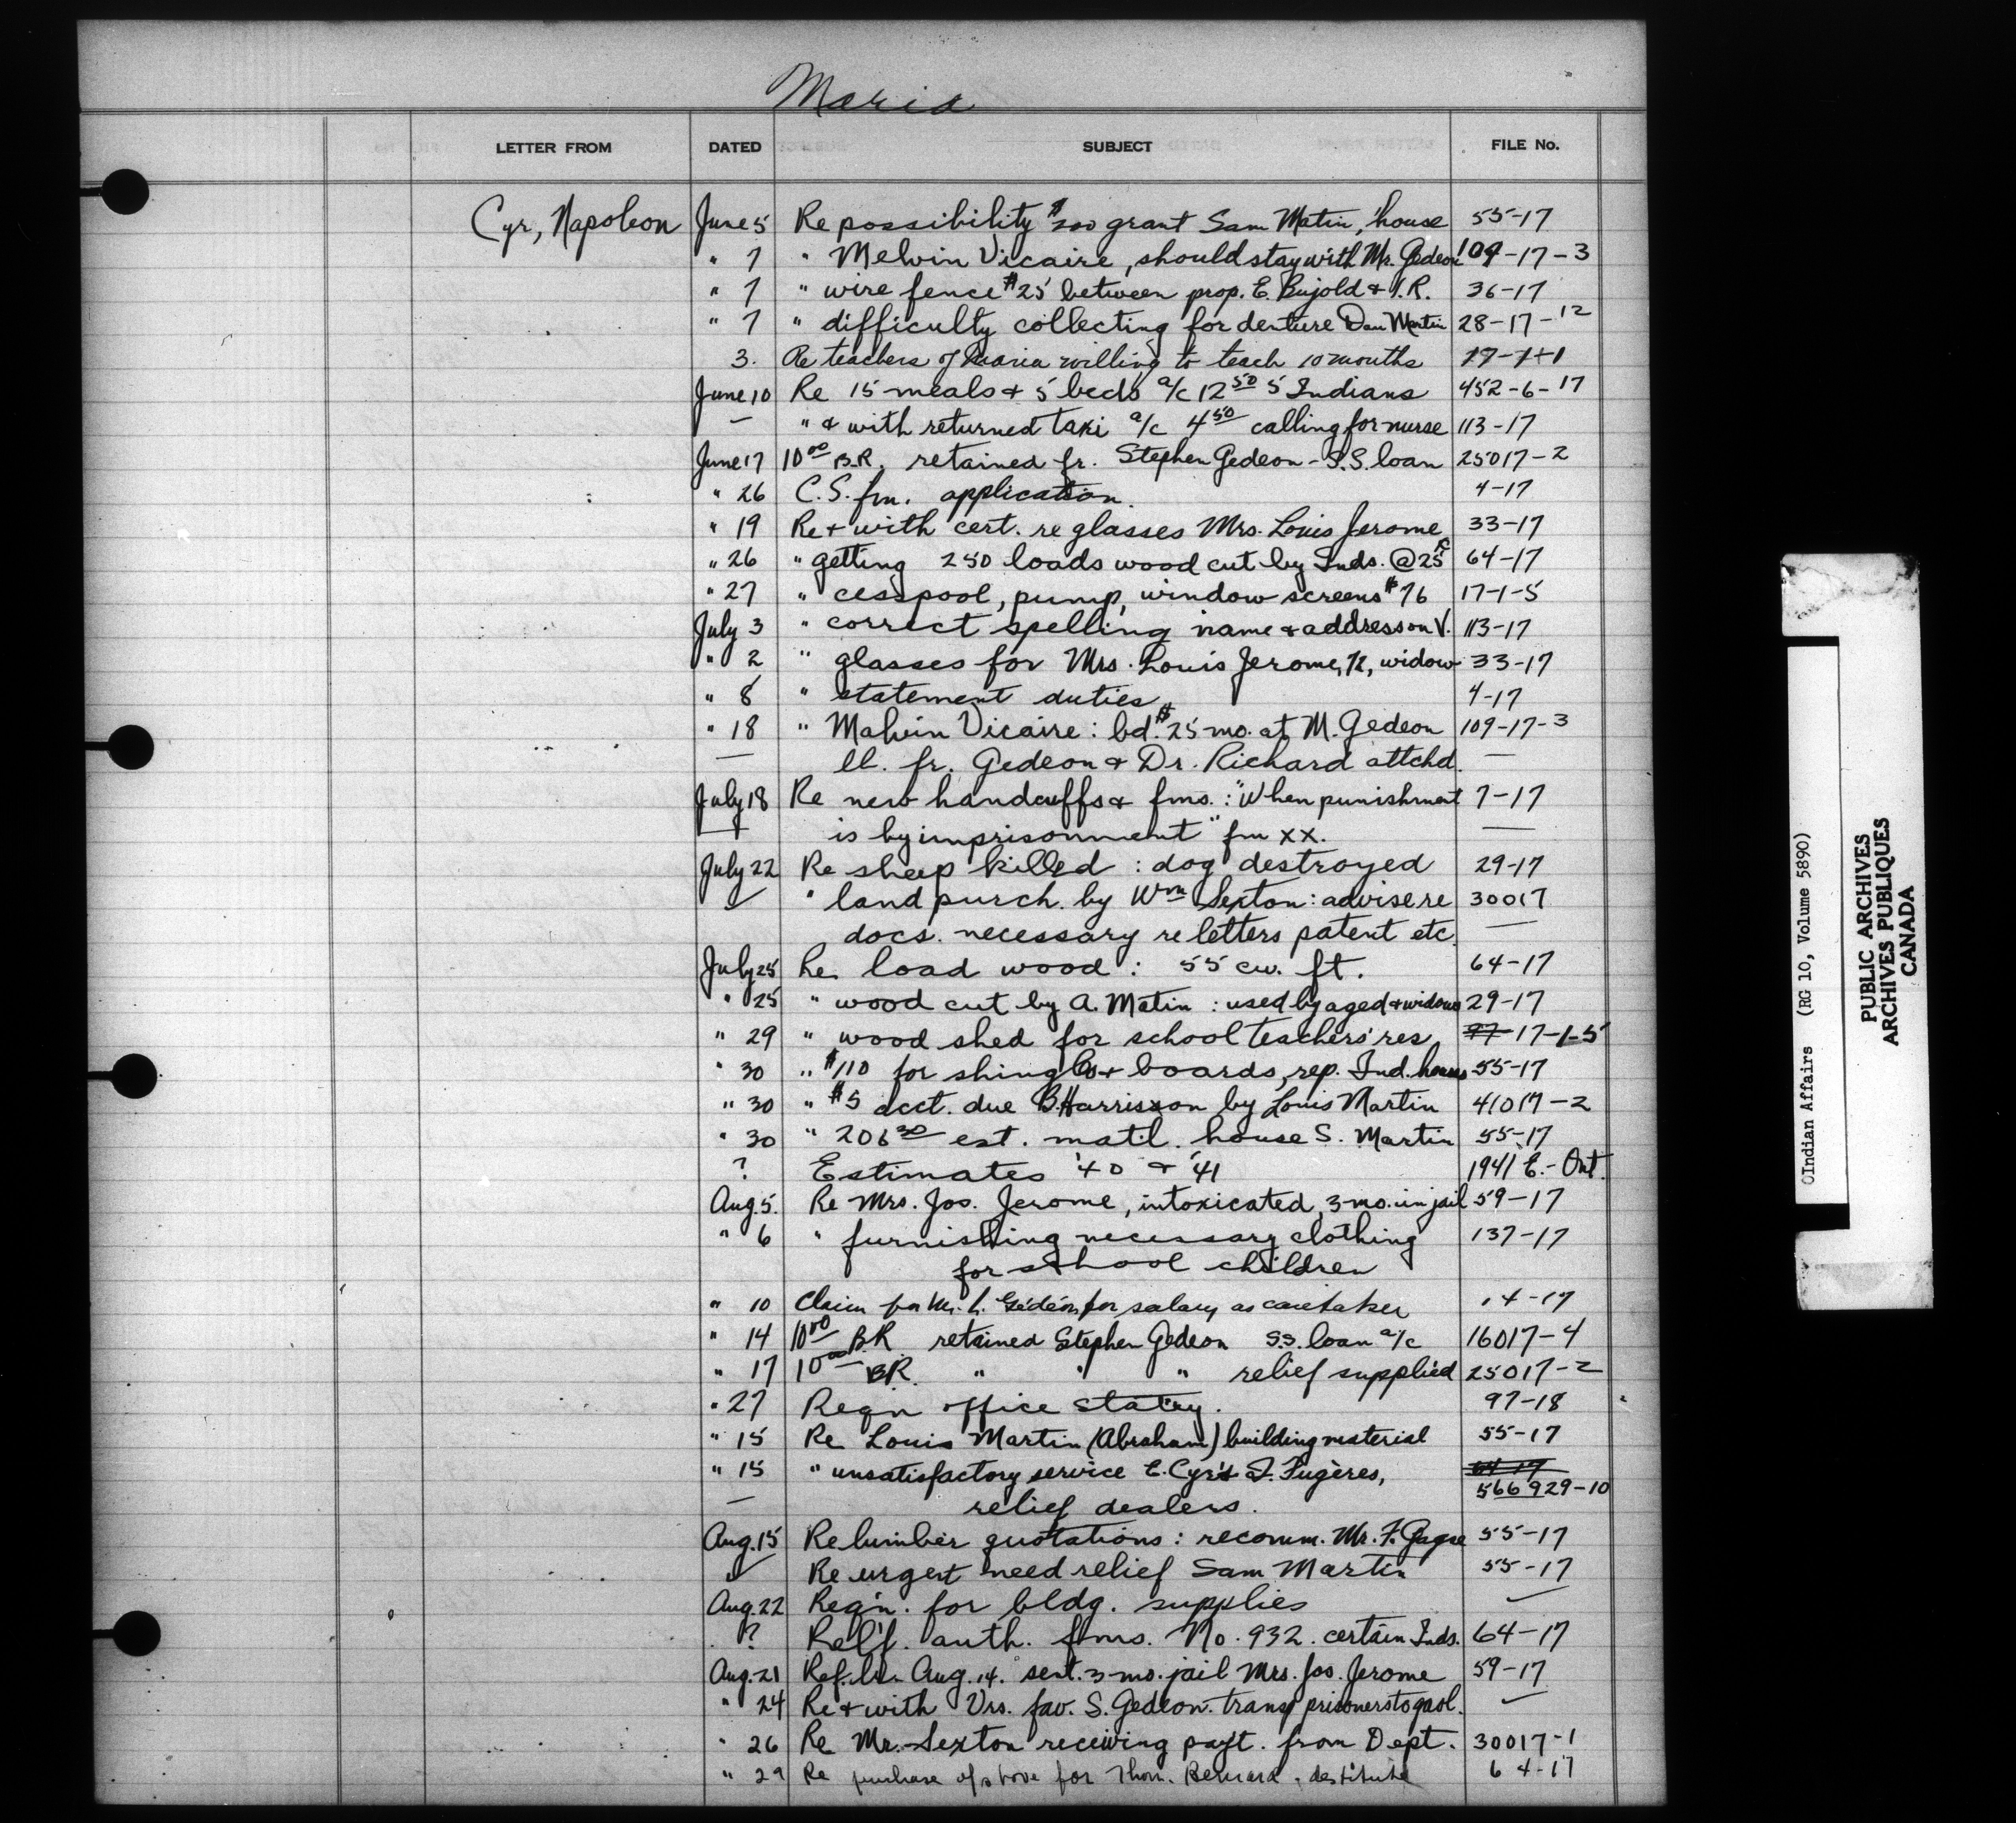 Maria
LETTER FROM DATED SUBJECT FILE No.
Cyr, Napoleon June 5 Re possibility $200 grant Sam Matin, house 55-17
" 7 " Melvin Vicaire, should stay with Mr. Gedeon 109-17-3
" 7 " wire fence $25 between prop. E. Bujold & I.R. 36-17
" 7 " difficulty collecting for denture Dan Martin 28-17-12
3. Re teachers of Maria willing to teach 10 months
June 10 Re 15 meals & 5 beds a/c 12 50 5 Indians 452-6-17
— " & with returned taxi a/c 4 50 calling for nurse 113-17
June 17 10 00 B.R. retained fr. Stephen Gedeon - S.S. loan 25017-2
" 26 C.S. fm. application 4-17
" 19 Re & with cert. re glasses Mrs. Louis Jerome 33-17
" 26 " getting 250 loads wood cut by Inds. @ 25¢ 64-17
" 27 " cesspool, pump, window screens $76 17-1-5
July 3 " correct spelling name & address on V. 113-17
" 2 " glasses for Mrs. Louis Jerome, 72, widow 33-17
" 8 " statement duties 4-17
" 18 " Malvin Vicaire: bd. $25 mo. at M. Gedeon 109-17-3
— ll. fr. Gedeon & Dr. Richard attchd. —
July 18 Re new handcuffs & fms.: "When punishment 7-17
is by imprisonment" fm xx. —
July 22 Re sheep killed: dog destroyed 29-17
✓ " land purch. by Wm Sexton: advise re 30017
docs. necessary re letters patent etc. —
July 25 Re load wood: 55 cu. ft. 64-17
" 25 " wood cut by A. Matin: used by aged & widows 29-17
" 29 " wood shed for school teachers' res. 97 17-1-5
" 30 " $110 for shingles & boards, rep. Ind. houses 55-17
" 30 " $5 acct. due B. Harrisson by Louis Martin 41017-2
" 30 " 206 30 est. mat'l. house S. Martin 55-17
? Estimates '40 & '41 1941 E.- Ont.
Aug. 5. Re Mrs. Jos. Jerome, intoxicated, 3-mo. in jail 59-17
" 6 " furnishing necessary clothing 137-17
for school children
" 10 Claim for Mr. L. Gédéon for salary as caretaker 14-17
" 14 10 00 B.R. retained Stephen Gedeon S.S. loan a/c 16017-4
" 17 10 00 BR. " " " relief supplied 25017-2
" 27 Reqn office staty. 97-18
" 15 Re Louis Martin (Abraham) building material 55-17
" 15 " unsatisfactory service E. Cyr & I. Fugères, 64-17
566 929-10
— relief dealers.
Aug. 15 Re lumber quotations: recomm. Mr. F. Gagne 55-17
✓ Re urgent need relief Sam Martin 55-17
Aug. 22 Reqn. for bldg. supplies
? Relf. auth. fms. No. 932. certain Inds. 64-17
Aug. 21 Ref. ltr. Aug. 14. sent. 3-mo. jail Mrs. Jos. Jerome 59-17
" 24 Re & with Vrs. fav. S. Gedeon. transp prisoners to gaol.
" 26 Re Mr. Sexton receiving payt. from Dept. 30017-1
" 29 Re purchase of stove for Thom. Bernard, destitute 64-17
OIndian Affairs (RG 10, Volume 5890)
PUBLIC ARCHIVES
ARCHIVES PUBLIQUES
CANADA